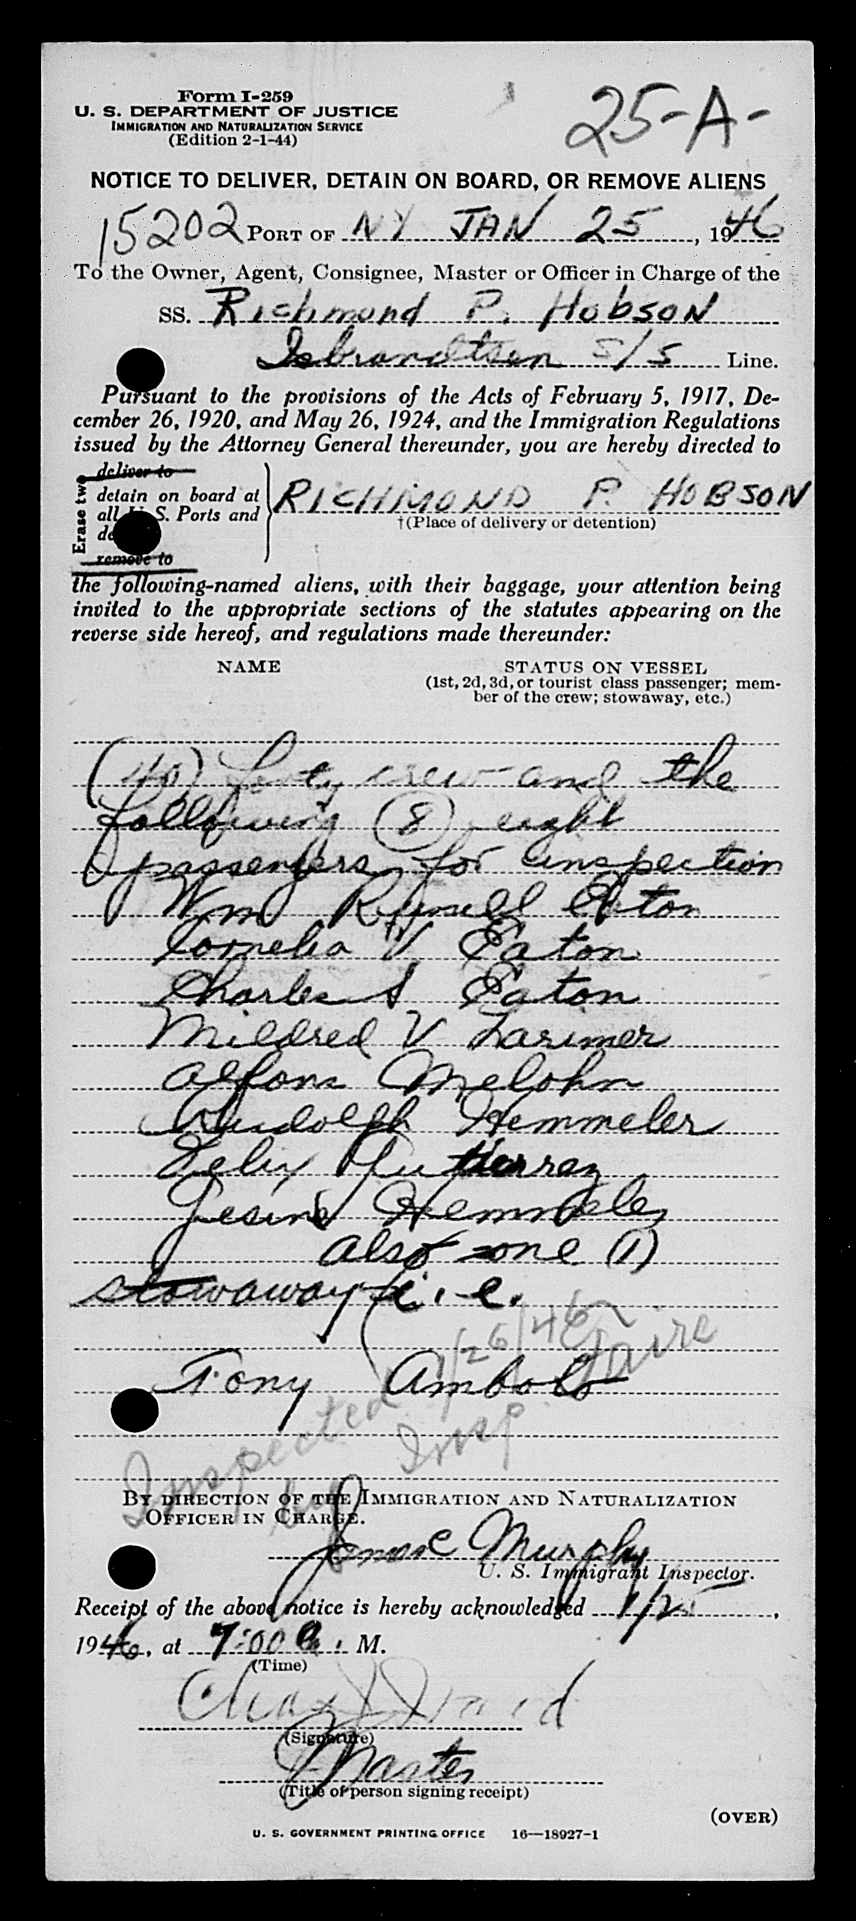 Form I-259
U. S. DEPARTMENT OF JUSTICE
IMMIGRATION AND NATURALIZATION SERVICE
(Edition 2-1-44)
25-A-
NOTICE TO DELIVER, DETAIN ON BOARD, OR REMOVE ALIENS
15202 PORT OF NY JAN 25, 1946
To the Owner, Agent, Consignee, Master or Officer in Charge of the
SS. Richmond P. Hobson
Isbrandtsen S/S Line.
Pursuant to the provisions of the Acts of February 5, 1917, De-
cember 26, 1920, and May 26, 1924, and the Immigration Regulations
issued by the Attorney General thereunder, you are hereby directed to
Erase two
deliver to
detain on board at
all U. S. Ports and
remove to
RICHMOND P. HOBSON
†(Place of delivery or detention)
the following-named aliens, with their baggage, your attention being
invited to the appropriate sections of the statutes appearing on the
reverse side hereof, and regulations made thereunder:
NAME STATUS ON VESSEL
(1st, 2d, 3d, or tourist class passenger; mem-
ber of the crew; stowaway, etc.)
(40) forty crew and the
following (8) eight
passengers for inspection
Wm Eaton
Cornelia V Eaton
Charles S Eaton
Mildred V Larimer
Alfons Melohn
Rudolph Hemmeler
Felix Gutierrez
Gesine Hemmeler
also one (1)
stowaway i. e.
Tony Ambolo
Inspected 1/26/46
by Insp.
BY DIRECTION OF THE IMMIGRATION AND NATURALIZATION
OFFICER IN CHARGE.
Murphy
U. S. Immigrant Inspector.
Receipt of the above notice is hereby acknowledged 1/25,
1946, at 7:00 A. M.
(Time)
(Signature)
Master
(Title of person signing receipt)
(OVER)
U. S. GOVERNMENT PRINTING OFFICE 16—18927-1